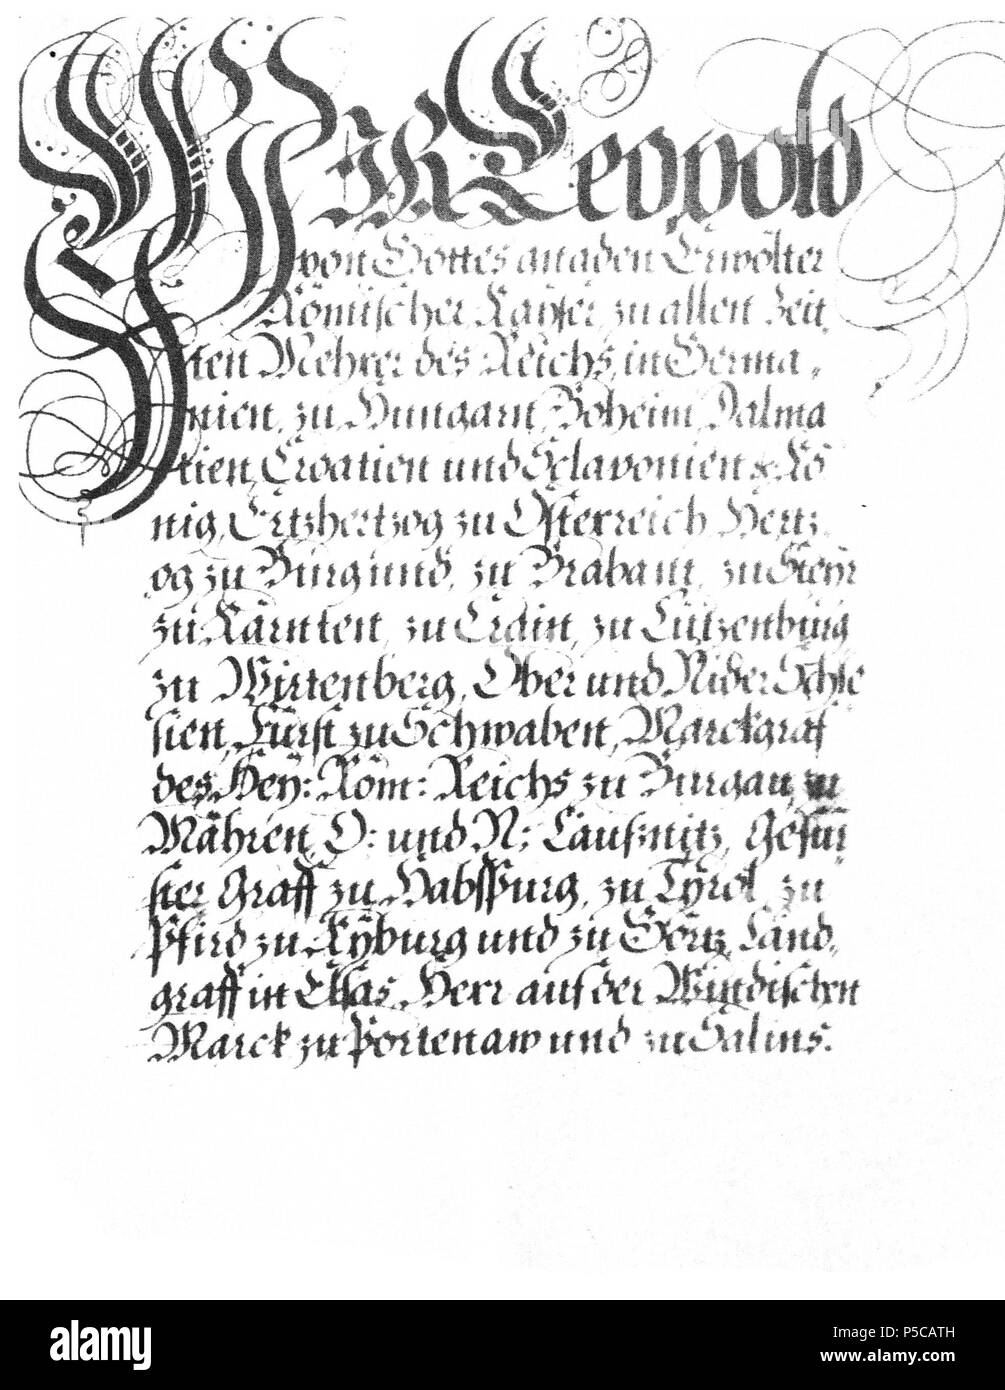 Wir Leopold
von Gottes gnaden Erwölter
Römischer Kayser, zu allen Zeit
ten Mehrer des Reichs, in Germa,
nien, zu Hungarn, Böheim, Dalma
tien, Croatien und Sclavonien &. Kö
nig, Ertzhertzog zu Österreich, Hertz,
og zu Burgund, zu Brabant, zu Steÿr
zu Kärnten, zu Crain, zu Lützenbürg
zu Wirtenberg, Ober und Nider Schle
sien, Fürst zu Schwaben, Marckgraf
des Hey: Röm: Reichs zu Burgau, zu
Mähren, O: und N: Laußnitz, Gefür
ster Graff zu Habspurg, zu Tÿrol, zu
Pfird zu Kÿburg und zu Görtz, Land,
graff in Elsas, Herr auf der Windischen
Marck zu Portenaw und zu Salins.
alamy
Image ID: P5CATH
www.alamy.com